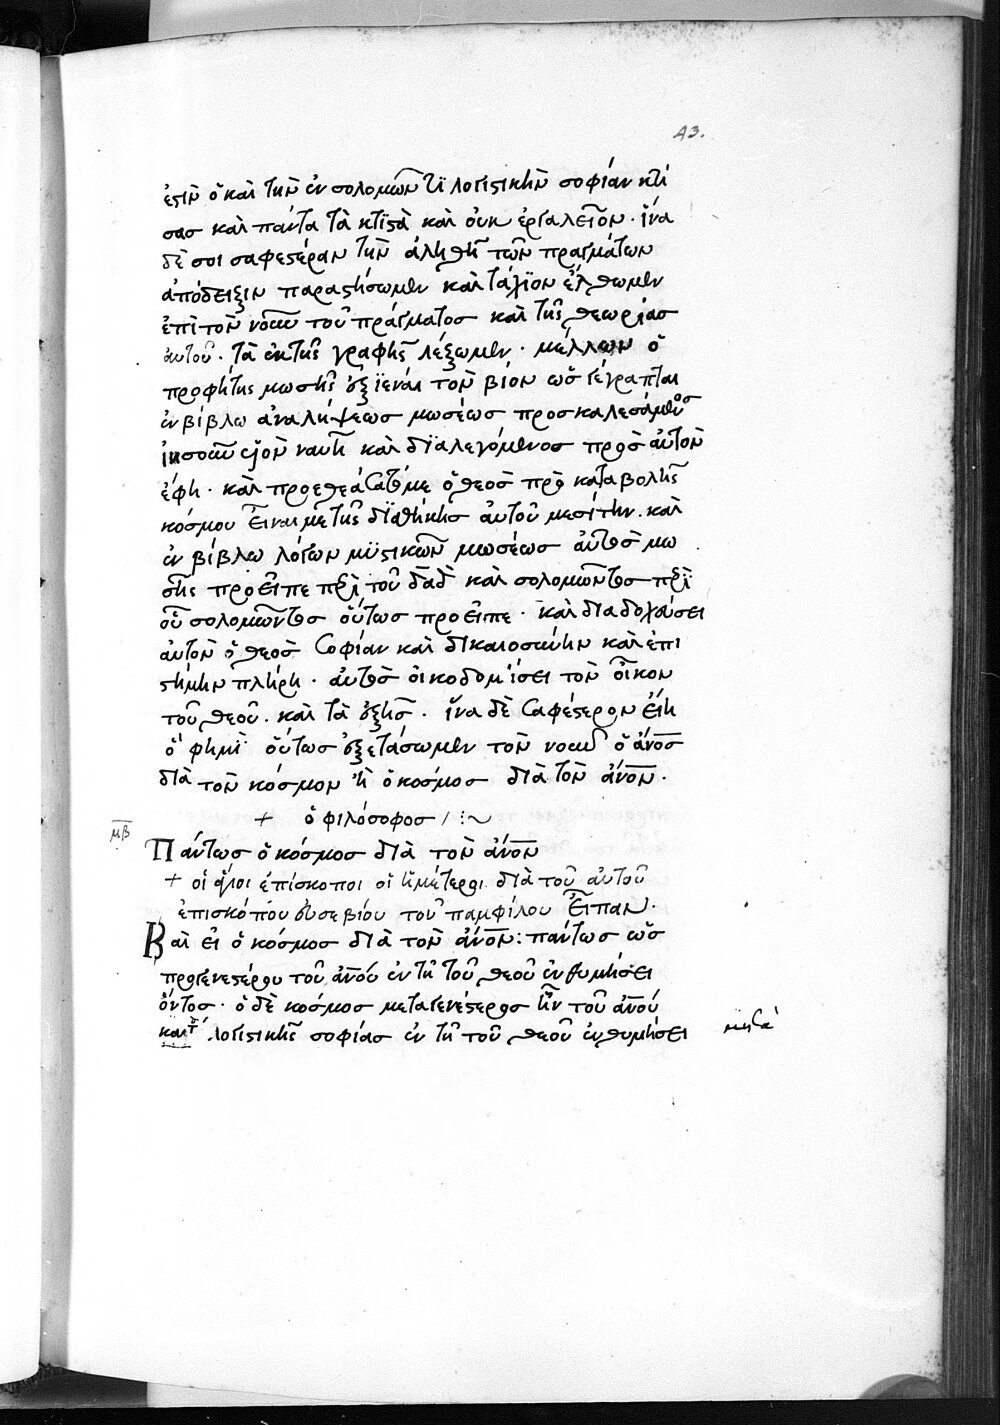 43.
ἐστὶν ὁ καὶ τὴν ἐν σολομῶντι λογιστικὴν σοφίαν κτί
σας καὶ πάντα τὰ κτϊστὰ καὶ οὐκ ἐργαλεῖον · ἵνα
δέ σοι σαφεστέραν τὴν ἀληθῆ τῶν πραγμάτων
ἀπόδειξιν παραστήσωμεν καὶ τάχϊον ἔλθωμεν
ἐπὶ τὸν νοῦν τοῦ πράγματος καὶ τῆς θεωρίας
αὐτοῦ · τὰ ἐκ τῆς γραφῆς λέξωμεν · μέλλων ὁ
προφήτης μωσῆς ἐξϊέναι τὸν βίον ὡς γέγραπται
ἐν βίβλω ἀναλήψεως μωσέως προσκαλεσάμενος
ἰησοῦν υἱὸν ναυῆ καὶ δϊαλεγόμενος πρὸς αὐτὸν
ἔφη · καὶ προεθεάσατό με ὁ θεὸς πρὸ καταβολῆς
κόσμου εἶναί με τῆς δϊαθήκης αὐτοῦ μεσίτην · καὶ
ἐν βίβλω λόγων μϋστικῶν μωσέως αὐτὸς μω
σῆς προεῖπε περὶ τοῦ δαδ καὶ σολομῶντος περὶ
οὗ σολομῶντος οὕτως προεῖπε · καὶ διαδοχεύσει
αὐτὸν ὁ θεὸς σοφίαν καὶ δικαιοσύνην καὶ ἐπι
στήμην πλήρη · αὐτὸς οἰκοδομήσει τὸν οἶκον
τοῦ θεοῦ · καὶ τὰ ἑξῆς · ἵνα δὲ σαφέστερον εἴη
ὅ φημι οὕτως ἐξετάσωμεν τὸν νοῦν ὁ ἄνος
διὰ τὸν κόσμον ἢ ὁ κόσμος διὰ τὸν ἄνον ·
+ ὁ φιλόσοφος
μβ
Πάντως ὁ κόσμος διὰ τὸν ἄνον
+ οἱ ἅγιοι ἐπίσκοποι οἱ ἡμέτεροι διὰ τοῦ αὐτοῦ
ἐπισκόπου εὐσεβίου τοῦ παμφίλου εἶπαν ·
Βαὶ εἰ ὁ κόσμος διὰ τὸν ἄνον: πάντως ὡς
προγενεστέρου τοῦ ἀνου ἐν τῆ τοῦ θεοῦ ἐνθυμήσει
ὄντος · ὁ δὲ κόσμος μεταγενέστερος ἦν τοῦ ἀνου
καὶ τ λογιστικῆς σοφίας ἐν τῆ τοῦ θεοῦ ἐνθυμήσει
μετὰ